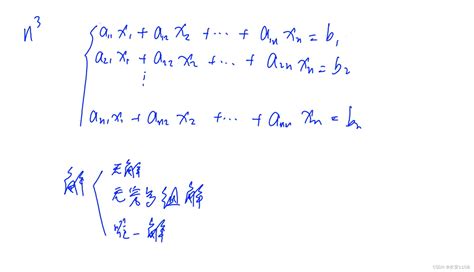 n³
a₁₁x₁ + a₁₂x₂ + ··· + a₁ₙxₙ = b₁
a₂₁x₁ + a₂₂x₂ + ··· + a₂ₙxₙ = b₂
⋮
aₙ₁x₁ + aₙ₂x₂ + ··· + aₙₙxₙ = bₙ
解
无解
无穷多组解
唯一解